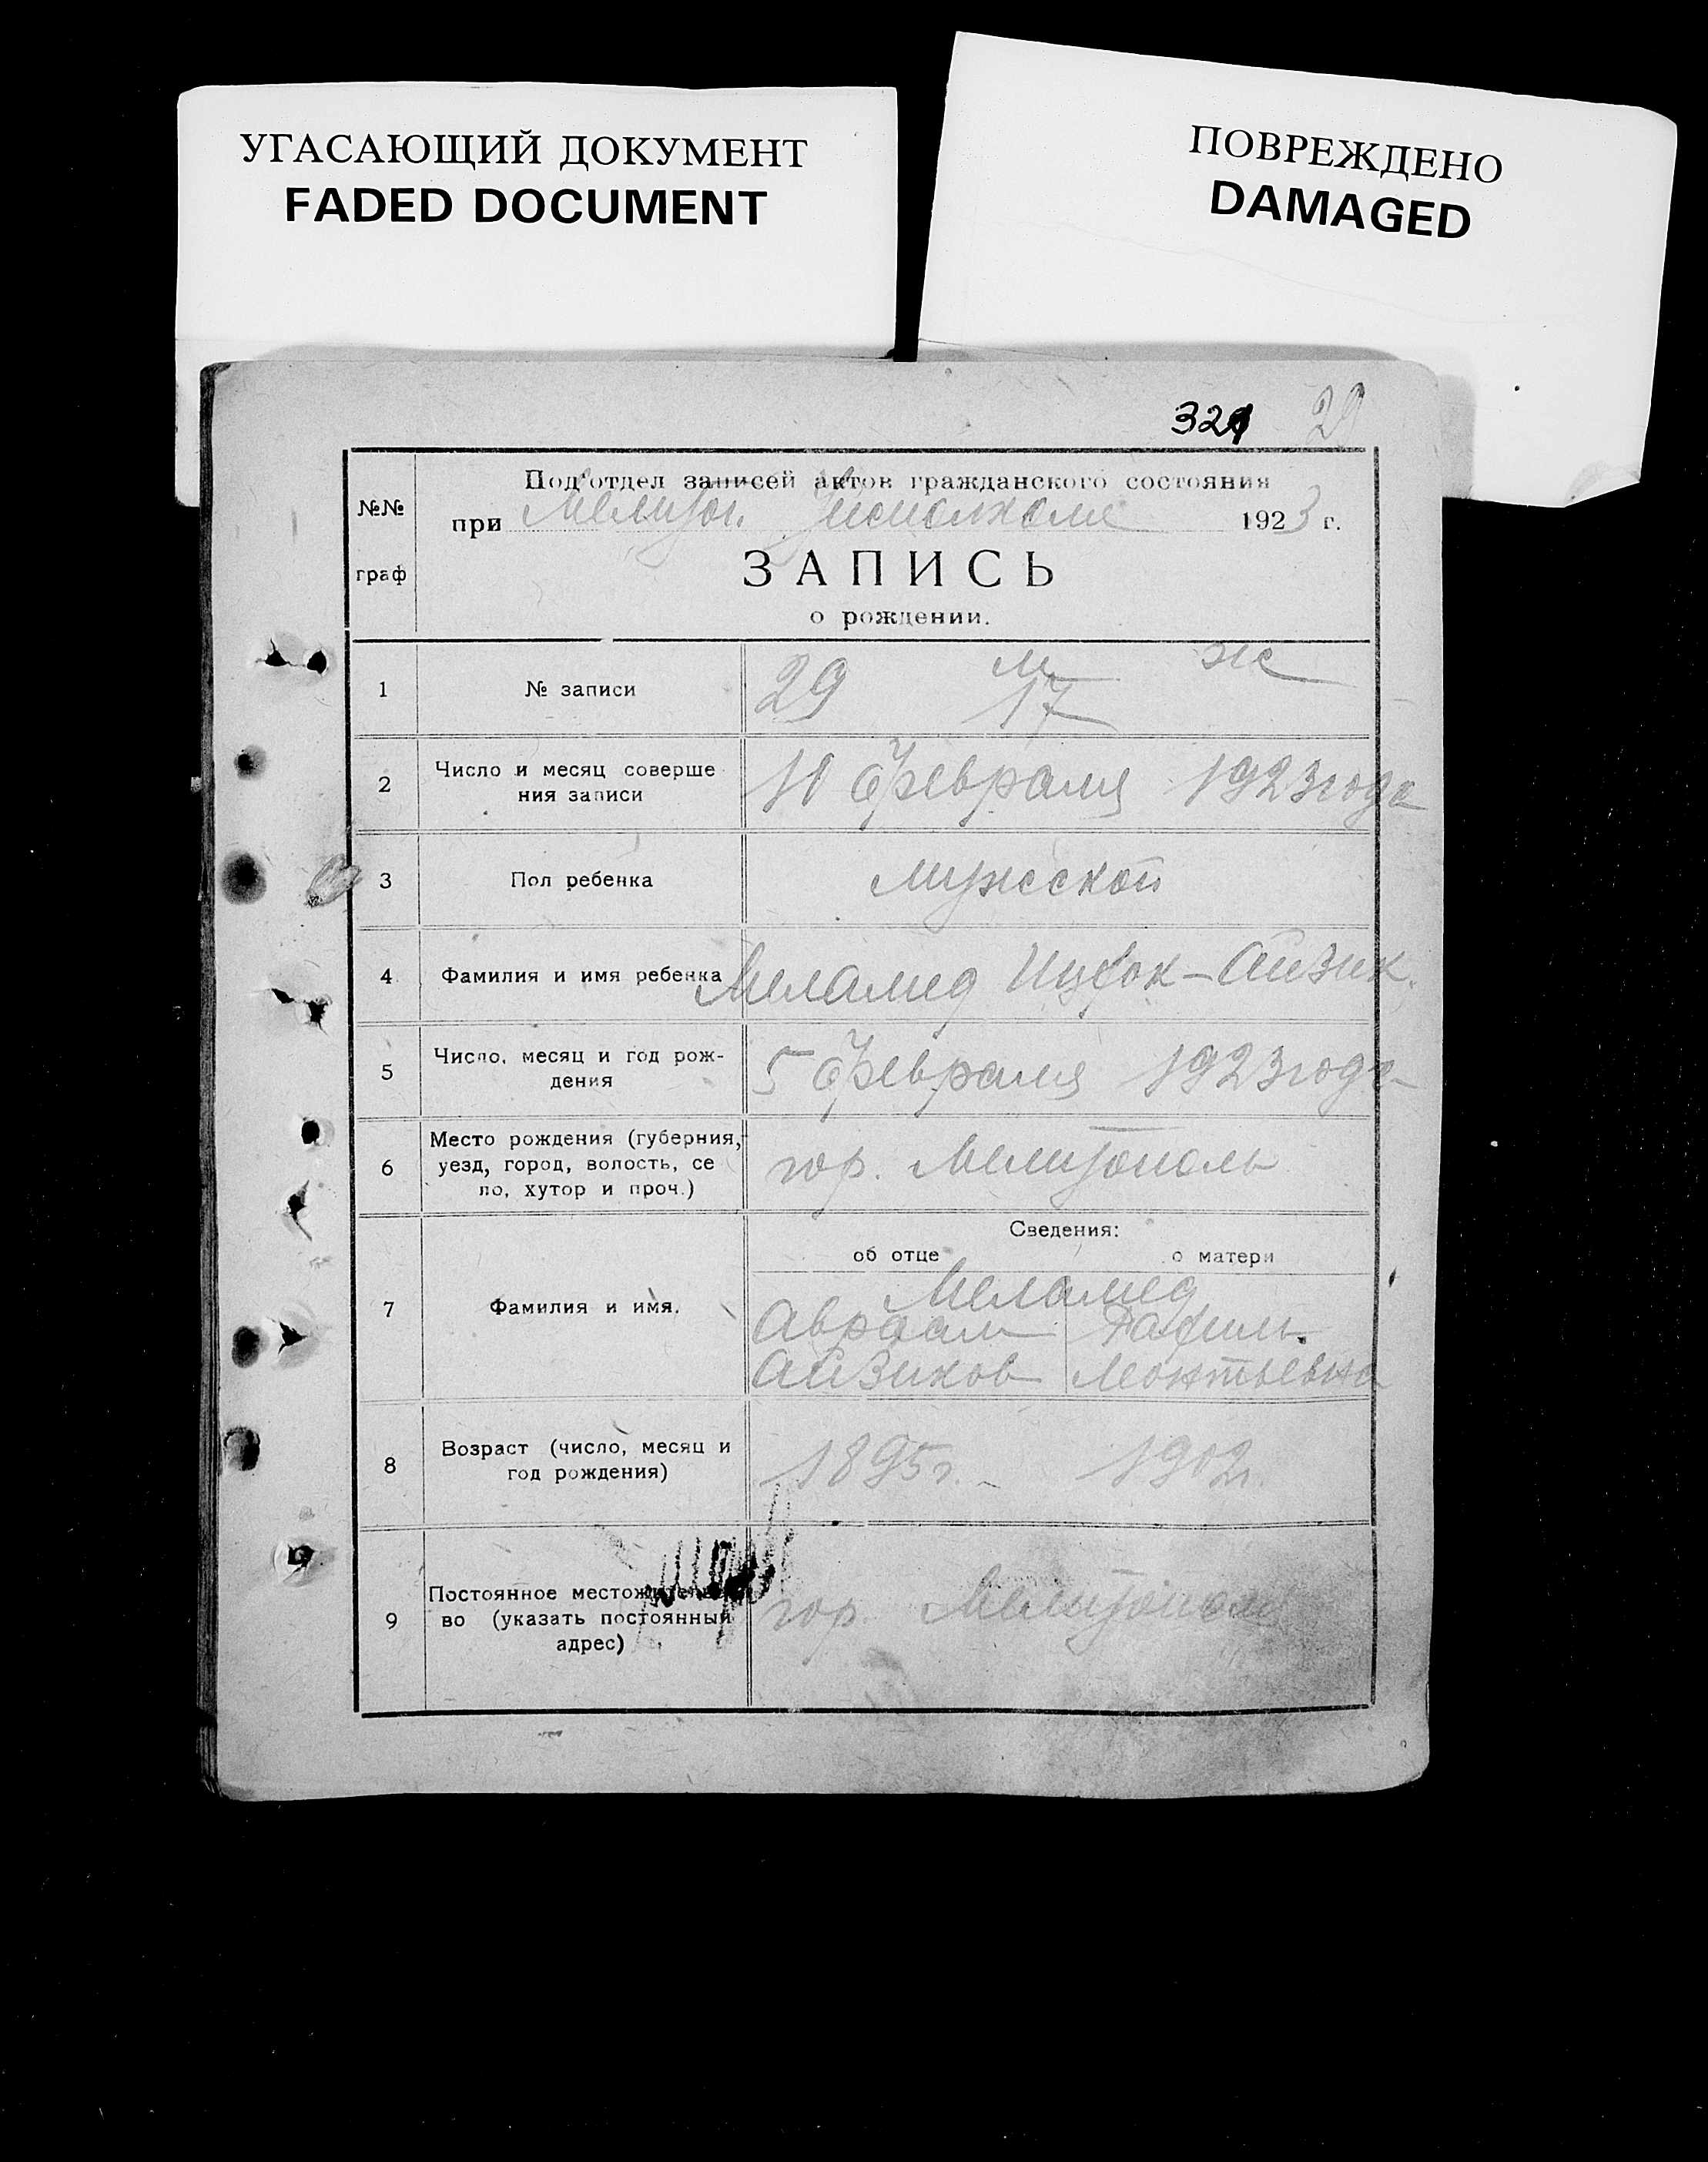 УГАСАЮЩИЙ ДОКУМЕНТ
FADED DOCUMENT
ПОВРЕЖДЕНО
DAMAGED
321 29
№№
граф
Под'отдел записей актов гражданского состояния
при Мелитоп. Исполкоме 1923 г.
ЗАПИСЬ
о рождении.
1 № записи 29 м 17 ж
2 Число и месяц соверше
ния записи
10 Февраля 1923 года
3 Пол ребенка мужской
4 Фамилия и имя ребенка Меламед Ицхок-Айзик.
5 Число, месяц и год рож-
дения
5 Февраля 1923 года
6 Место рождения (губерния,
уезд, город, волость, се
ло, хутор и проч.)
гор. Мелитополь
Сведения:
об отце о матери
7 Фамилия и имя.
Меламед
Авраам Рахиль
Айзиков Леонтьевна
8 Возраст (число, месяц и
год рождения)
1895 г. 1902 г.
9 Постоянное местожительст
во (указать постоянный
адрес)
гор. Мелитополь